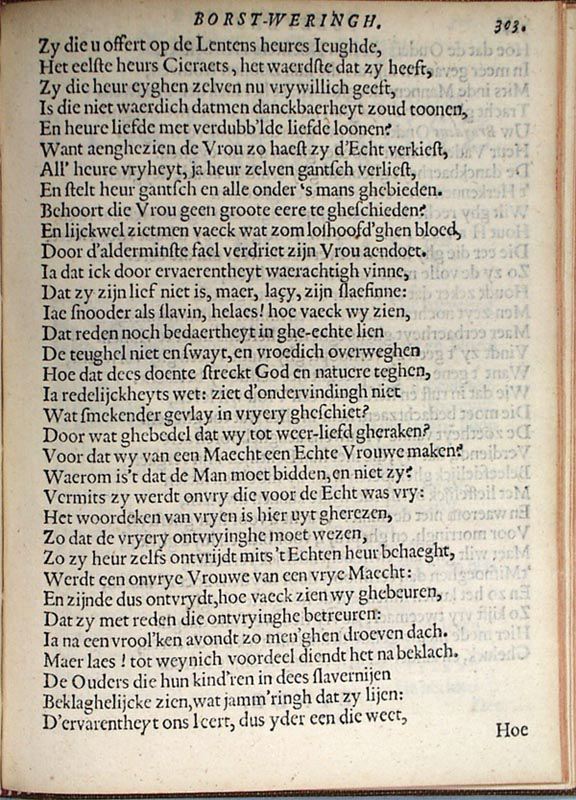 BORST-WERINGH. 303.
Zy die u offert op de Lentens heures Ieughde,
Het eelſte heurs Cieraets, het waerdſte dat zy heeft,
Zy die heur eyghen zelven nu vrywillich geeft,
Is die niet waerdich datmen danckbaerheyt zoud toonen,
En heure liefde met verdubb'lde liefde loonen?
Want aenghezien de Vrou zo haeſt zy d'Echt verkieſt,
All' heure vryheyt, ja heur zelven gantſch verlieſt,
En ſtelt heur gantſch en alle onder 's mans ghebieden.
Behoort die Vrou geen groote eere te gheſchieden?
En lijckwel zietmen vaeck wat zom loſhoofd'ghen bloed,
Door d'alderminſte fael verdriet zijn Vrou aendoet.
Ia dat ick door ervaerentheyt waerachtigh vinne,
Dat zy zijn lief niet is, maer, laçy, zijn ſlaefinne:
Iae ſnooder als ſlavin, helaes! hoe vaeck wy zien,
Dat reden noch bedaertheyt in ghe-echte lien
De teughel niet en ſwayt, en vroedich overweghen
Hoe dat dees doente ſtreckt God en natuere teghen,
Ia redelijckheyts wet: ziet d'ondervindingh niet
Wat ſmekender gevlay in vryery gheſchiet?
Door wat ghebedel dat wy tot weer-liefd gheraken?
Voor dat wy van een Maecht een Echte Vrouwe maken?
Waerom is't dat de Man moet bidden, en niet zy?
Vermits zy werdt onvry die voor de Echt was vry:
Het woordeken van vryen is hier uyt gherezen,
Zo dat de vryery ontvryinghe moet wezen,
Zo zy heur zelfs ontvrijdt mits 't Echten heur behaeght,
Werdt een onvrye Vrouwe van een vrye Maecht:
En zijnde dus ontvrydt, hoe vaeck zien wy ghebeuren,
Dat zy met reden die ontvryinghe betreuren:
Ia na een vrool'ken avondt zo men 'ghen droeven dach.
Maer laes! tot weynich voordeel diendt het na beklach.
De Ouders die hun kind'ren in dees ſlavernijen
Beklaghelijcke zien, wat jamm'ringh dat zy lijen:
D'ervarentheyt ons leert, dus yder een die weet,
Hoe